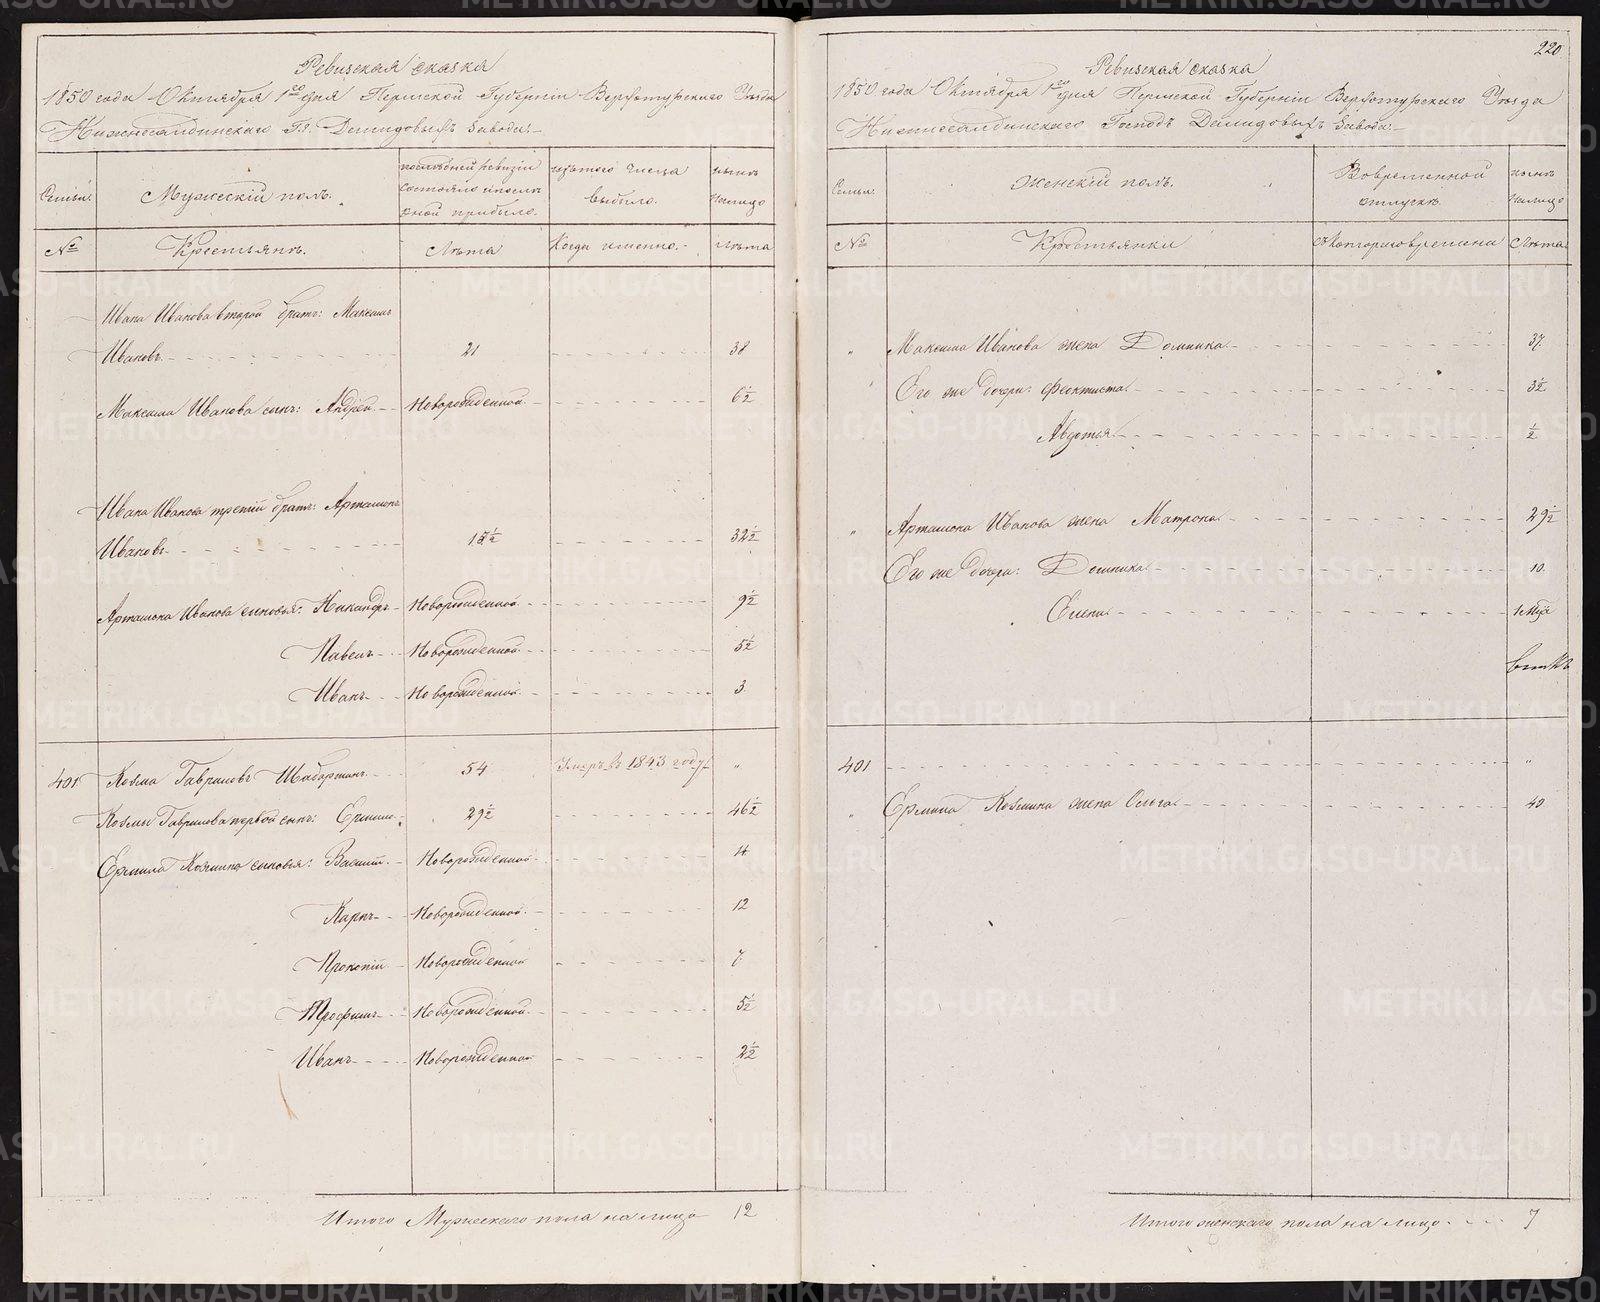 Ревизская сказка
1850 года Октября 1го дня Пермской Губерніи Верхотурскаго Уѣзда
Нижнесалдинскаго Г.г. Демидовыхъ Завода:
Семьи. Мужескій полъ. последней ревизіи состояло и после оной прибыло. изъ того числа выбыло. нынѣ налицо
№ Крестьянъ. Лѣта Когда именно. Лѣта
Ивана Иванова второй братъ: Максимъ
Ивановъ 21 38
Максима Иванова сынъ: Андрей Новорожденной 6½
Ивана Иванова третій братъ: Артамонъ
Ивановъ 15½ 32½
Артамона Иванова сыновья: Никандръ Новорожденной 9½
Павелъ Новорожденной 5½
Иванъ Новорожденной 3
401 Козма Гавриловъ 54 Умеръ въ 1843 году "
Козмы Гаврилова первой сынъ: Ермило 29½ 46½
Ермила Козмина сыновья: Васили Новорожденной 14
Карпъ Новорожденной 12
Прокопій Новорожденной 7
Трофимъ Новорожденной 5½
Иванъ Новорожденной 2½
Итого Мужескаго пола на лицо 12
220
Ревизская сказка
1850 года Октября 1го дня Пермской Губерніи Верхотурскаго Уѣзда
Нижнесалдинскаго Господъ Демидовыхъ Завода:
Семьи. Женскій полъ. Во временной отлучкѣ. нынѣ налицо
№ Крестьянки съ котораго времени Лѣта
" Максима Иванова жена Домника 37
" Его же дочери: Феоктиста 3½
Авдотья ½
" Артамона Иванова жена Матрона 29½
Его же дочери: Домника 10
Елена
401 "
" Ермила Козмина жена Ольга 40
Итого женскаго пола на лицо 7
METRIKI.GASO-URAL.RU